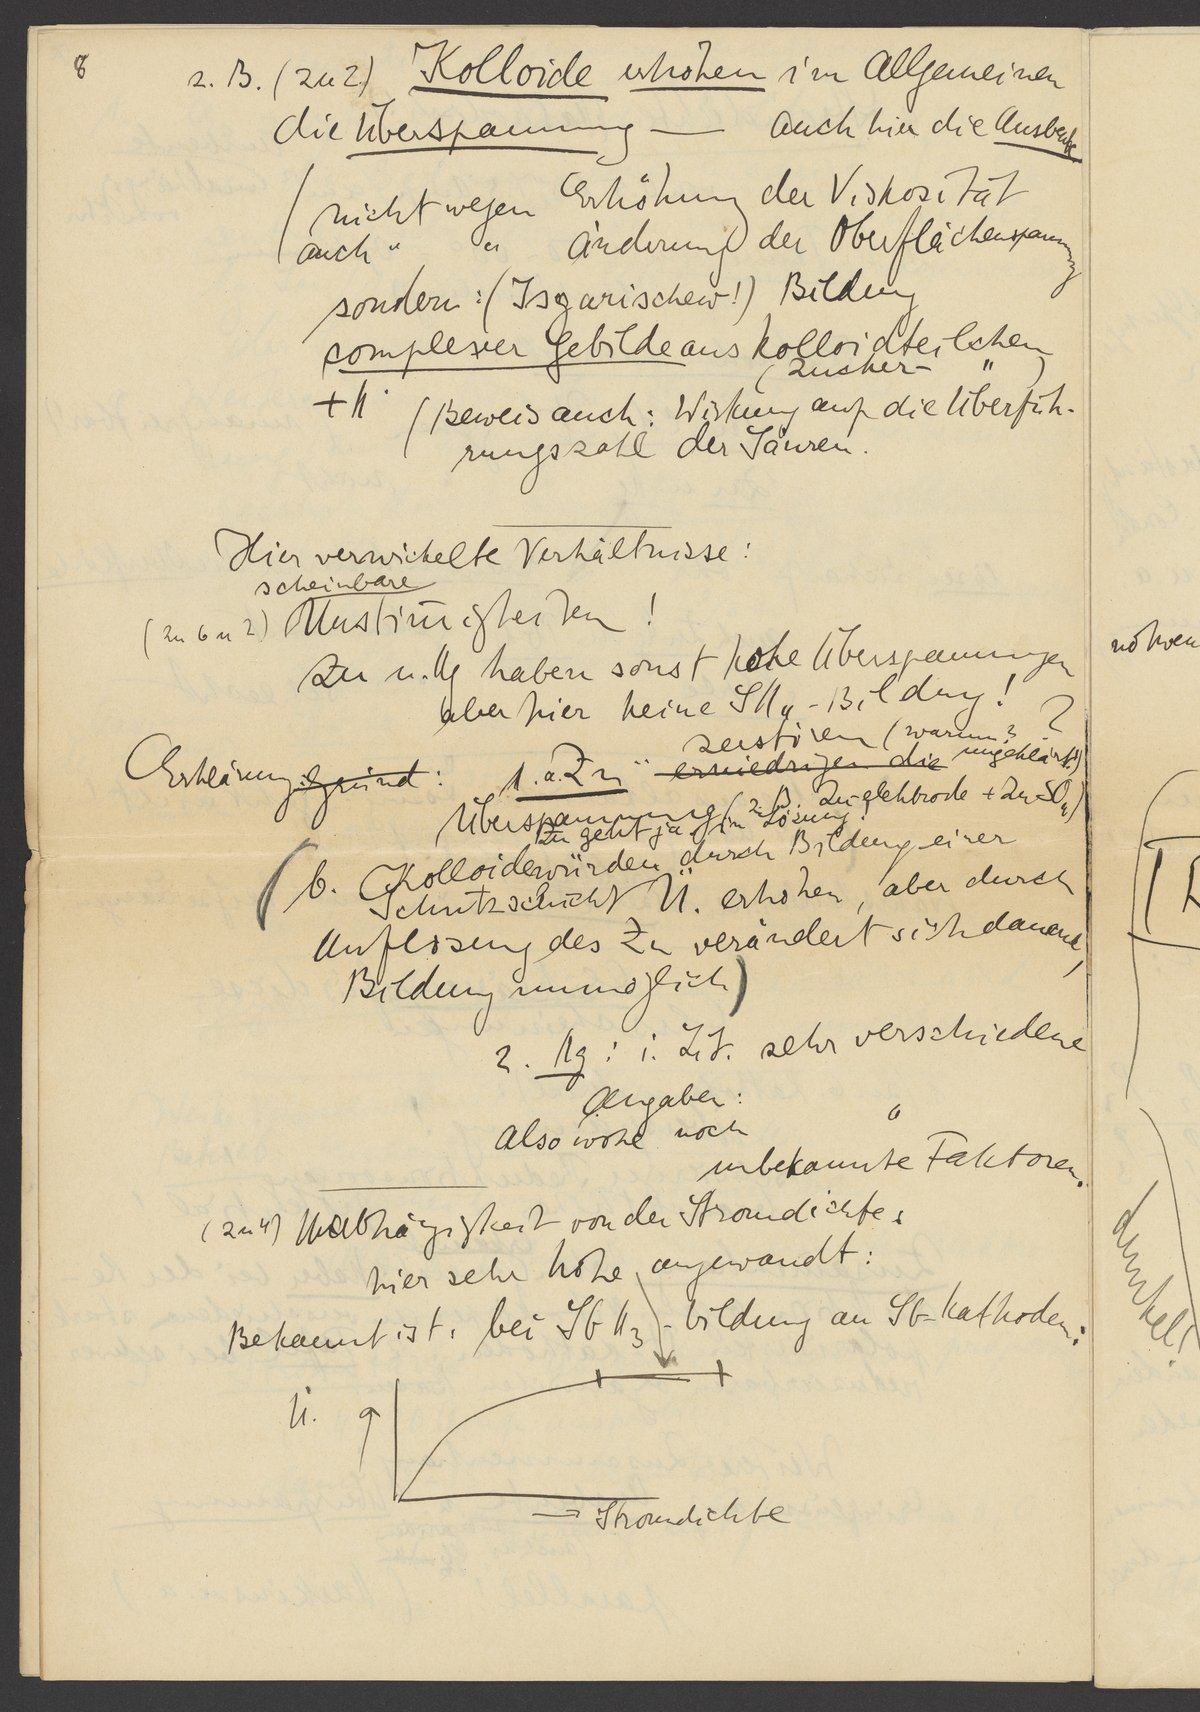 8
z. B. (zu 2) Kolloide erhöhen im Allgemeinen
die Überspannung — auch hier die Ausbeute
(nicht wegen Erhöhung der Viskosität
auch " " Änderung der Oberflächenspannung
sondern: (Isgarischew!) Bildung
complexer Gebilde aus Kolloidteilchen
(Zucker- " )
+ H·
(Beweis auch: Wirkung auf die Überfüh-
rungszahl der Säuren.
Hier verwickelte Verhältnisse:
scheinbare
(zu 6 u 2) Unstim̅igkeiten!
Zn u. Hg haben sonst hohe Überspannungen
aber hier keine SH4-Bildung! ?
zerstören (warum? ungeklärt!)
Erklärungsgründ: 1. a. Zn" erniedrigen die
Überspannung (z. B. Zn-elektrode + ZnSO4)
Zn geht ja in Lösung!
(b. Kolloide würden durch Bildung einer
Schutzschicht Ü. erhöhen, aber durch
Auflösung des Zn verändert sich dauernd,
Bildung unmöglich)
2. Hg: i. Lit. sehr verschiedene
Angaben:
also wohl noch
unbekannte Faktoren.
(zu 4) Unabhängigkeit von der Stromdichte:
hier sehr hohe angewandt:
Bekannt ist: bei SbH3-bildung an Sb-Kathoden:
Ü.
→ Stromdichte
nöhren
dunkel!